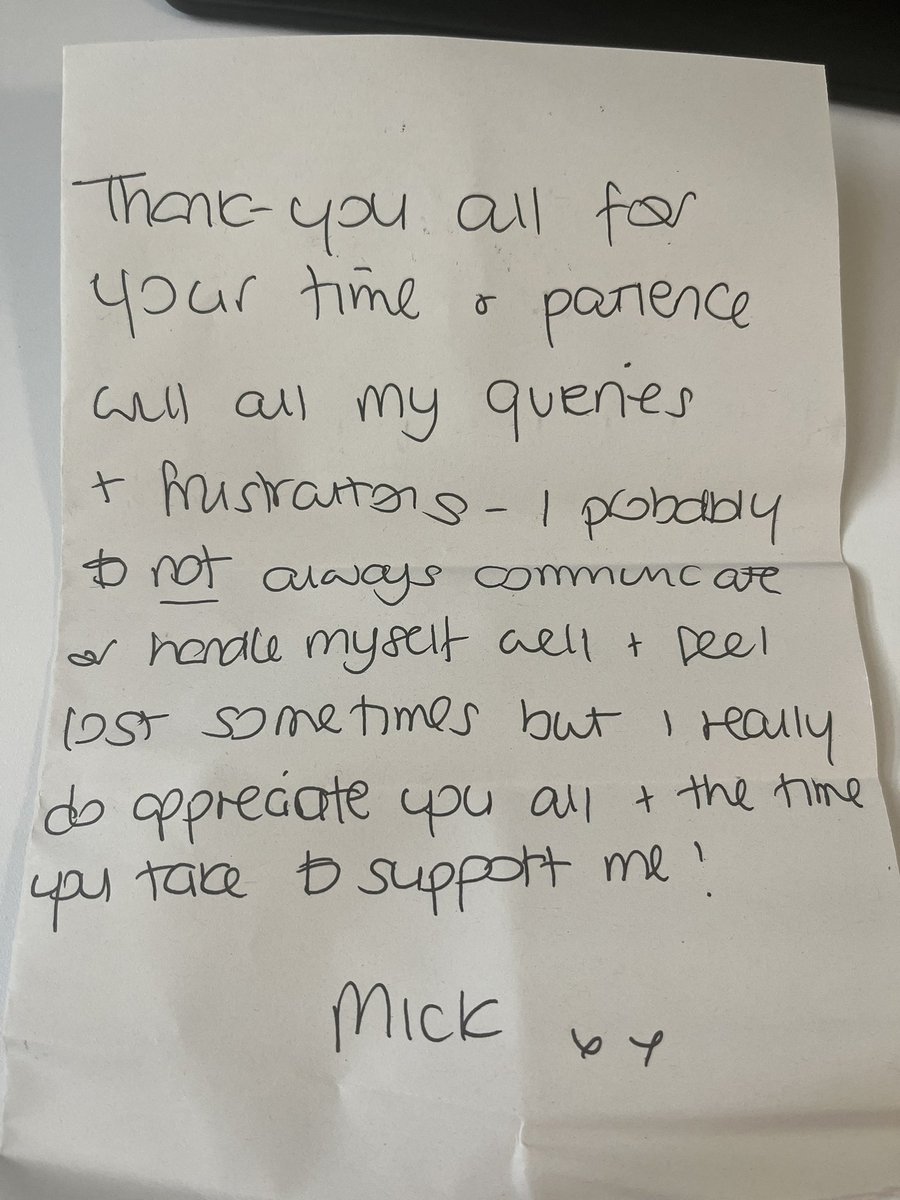 Thank-you all for
your time & patience
with all my queries
+ frustrations - I probably
do not always communicate
or handle myself well + feel
lost sometimes but I really
do appreciate you all + the time
you take to support me!
Mick xx